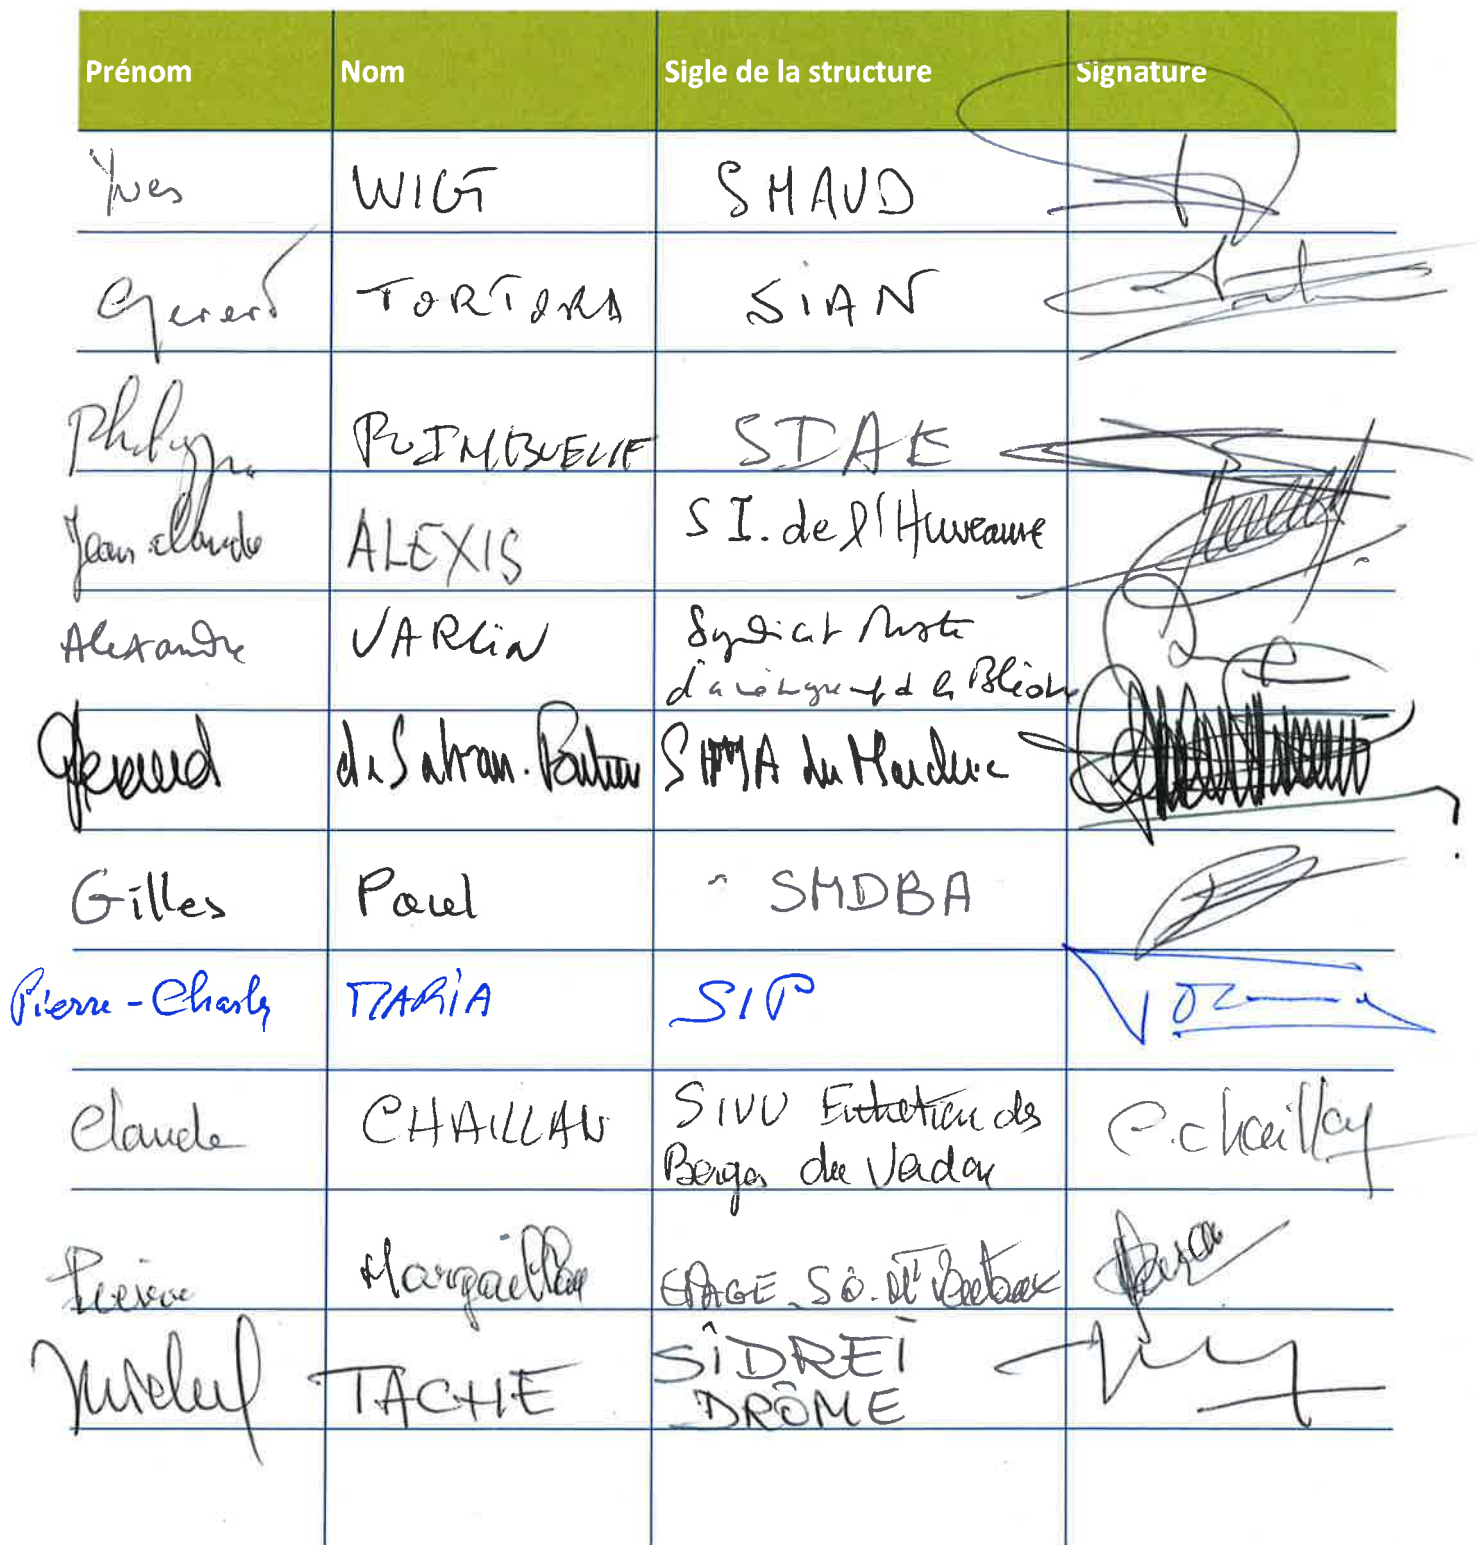 Prénom Nom Sigle de la structure Signature
Yves WIGT SMAVD
Gerard TORTORA SIAN
Philippe SIAE
Jean-Claude ALEXIS S I. de l'Huveaune
Alexandre VARLIN Syndicat Mixte
d'aménagement de la Bléone
de Sabran-Pontevès SIMA du
Gilles Paul SMDBA
Pierre-Charles MARIA SIP
Claude CHAILLAN SIVU Entretien des
Berges du Verdon C. chaillan
Margaillan EPAGE
Michel TACHE SIDREI
DRÔME